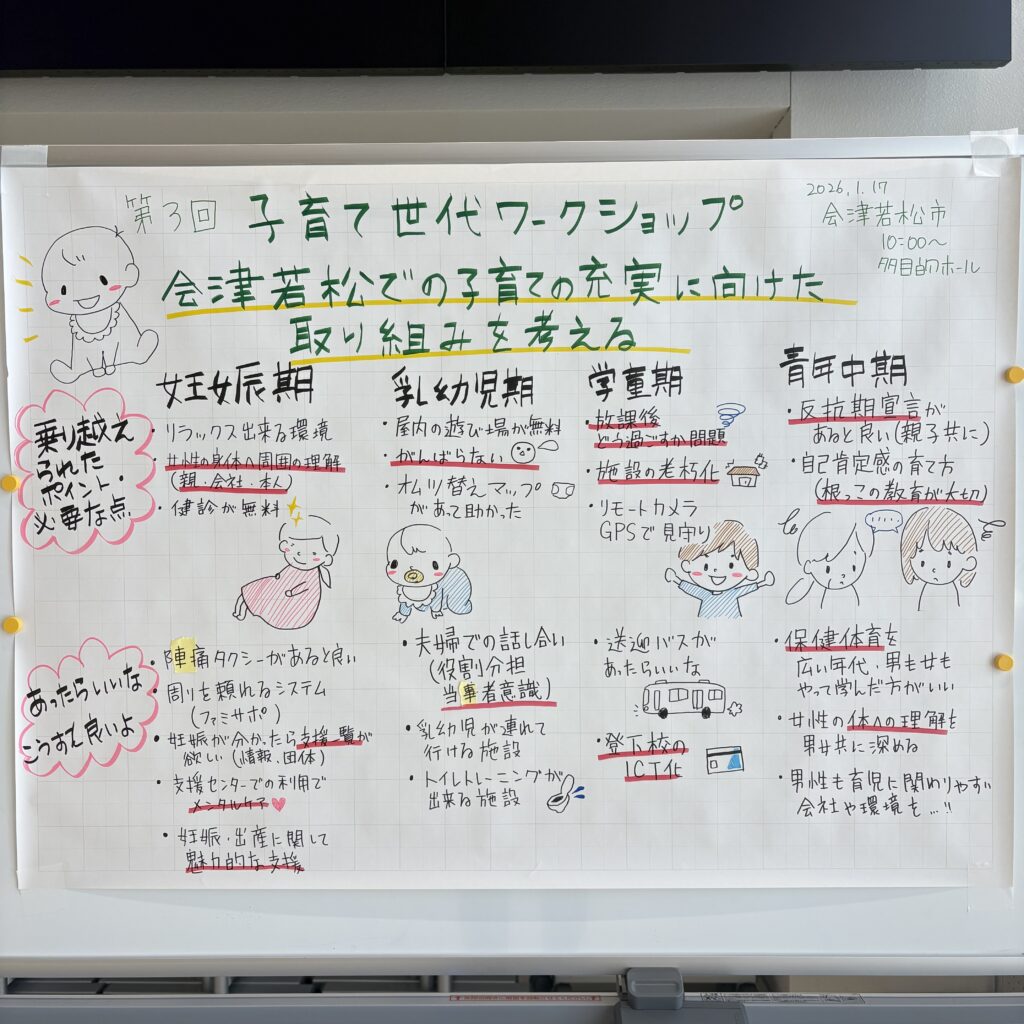 第3回 子育て世代ワークショップ
2026.1.17
会津若松市
10:00〜
多目的ホール
会津若松での子育ての充実に向けた
取り組みを考える
乗り越え
られた
ポイント・
必要な点
妊娠期
・リラックス出来る環境
・女性の身体へ周囲の理解
(親・会社・本人)
・健診が無料
乳幼児期
・屋内の遊び場が無料
・がんばらない
・オムツ替えマップ
があって助かった
学童期
・放課後
どう過ごすか問題
・施設の老朽化
・リモートカメラ
GPSで見守り
青年中期
・反抗期宣言が
あると良い(親子共に)
・自己肯定感の育て方
(根っこの教育が大切)
あったらいいな
こうすると良いよ
・陣痛タクシーがあると良い
・周りを頼れるシステム
(ファミサポ)
・妊娠が分かったら支援一覧が
欲しい(情報、団体)
・支援センターでの利用で
メンタルケア
・妊娠・出産に関して
魅力的な支援
・夫婦での話し合い
(役割分担
当事者意識)
・乳幼児が連れて
行ける施設
・トイレトレーニングが
出来る施設
・送迎バスが
あったらいいな
・登下校の
ICT化
・保健体育を
広い年代・男も女も
やって学んだ方がいい
・女性の体への理解を
男女共に深める
・男性も育児に関わりやすい
会社や環境を…!!